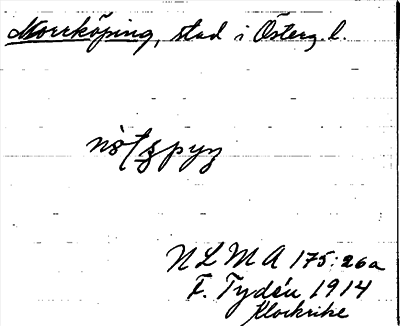 Norrköping, stad i Österg. l.
N L M A 175:26a
F. Tydén 1914
Klockrike